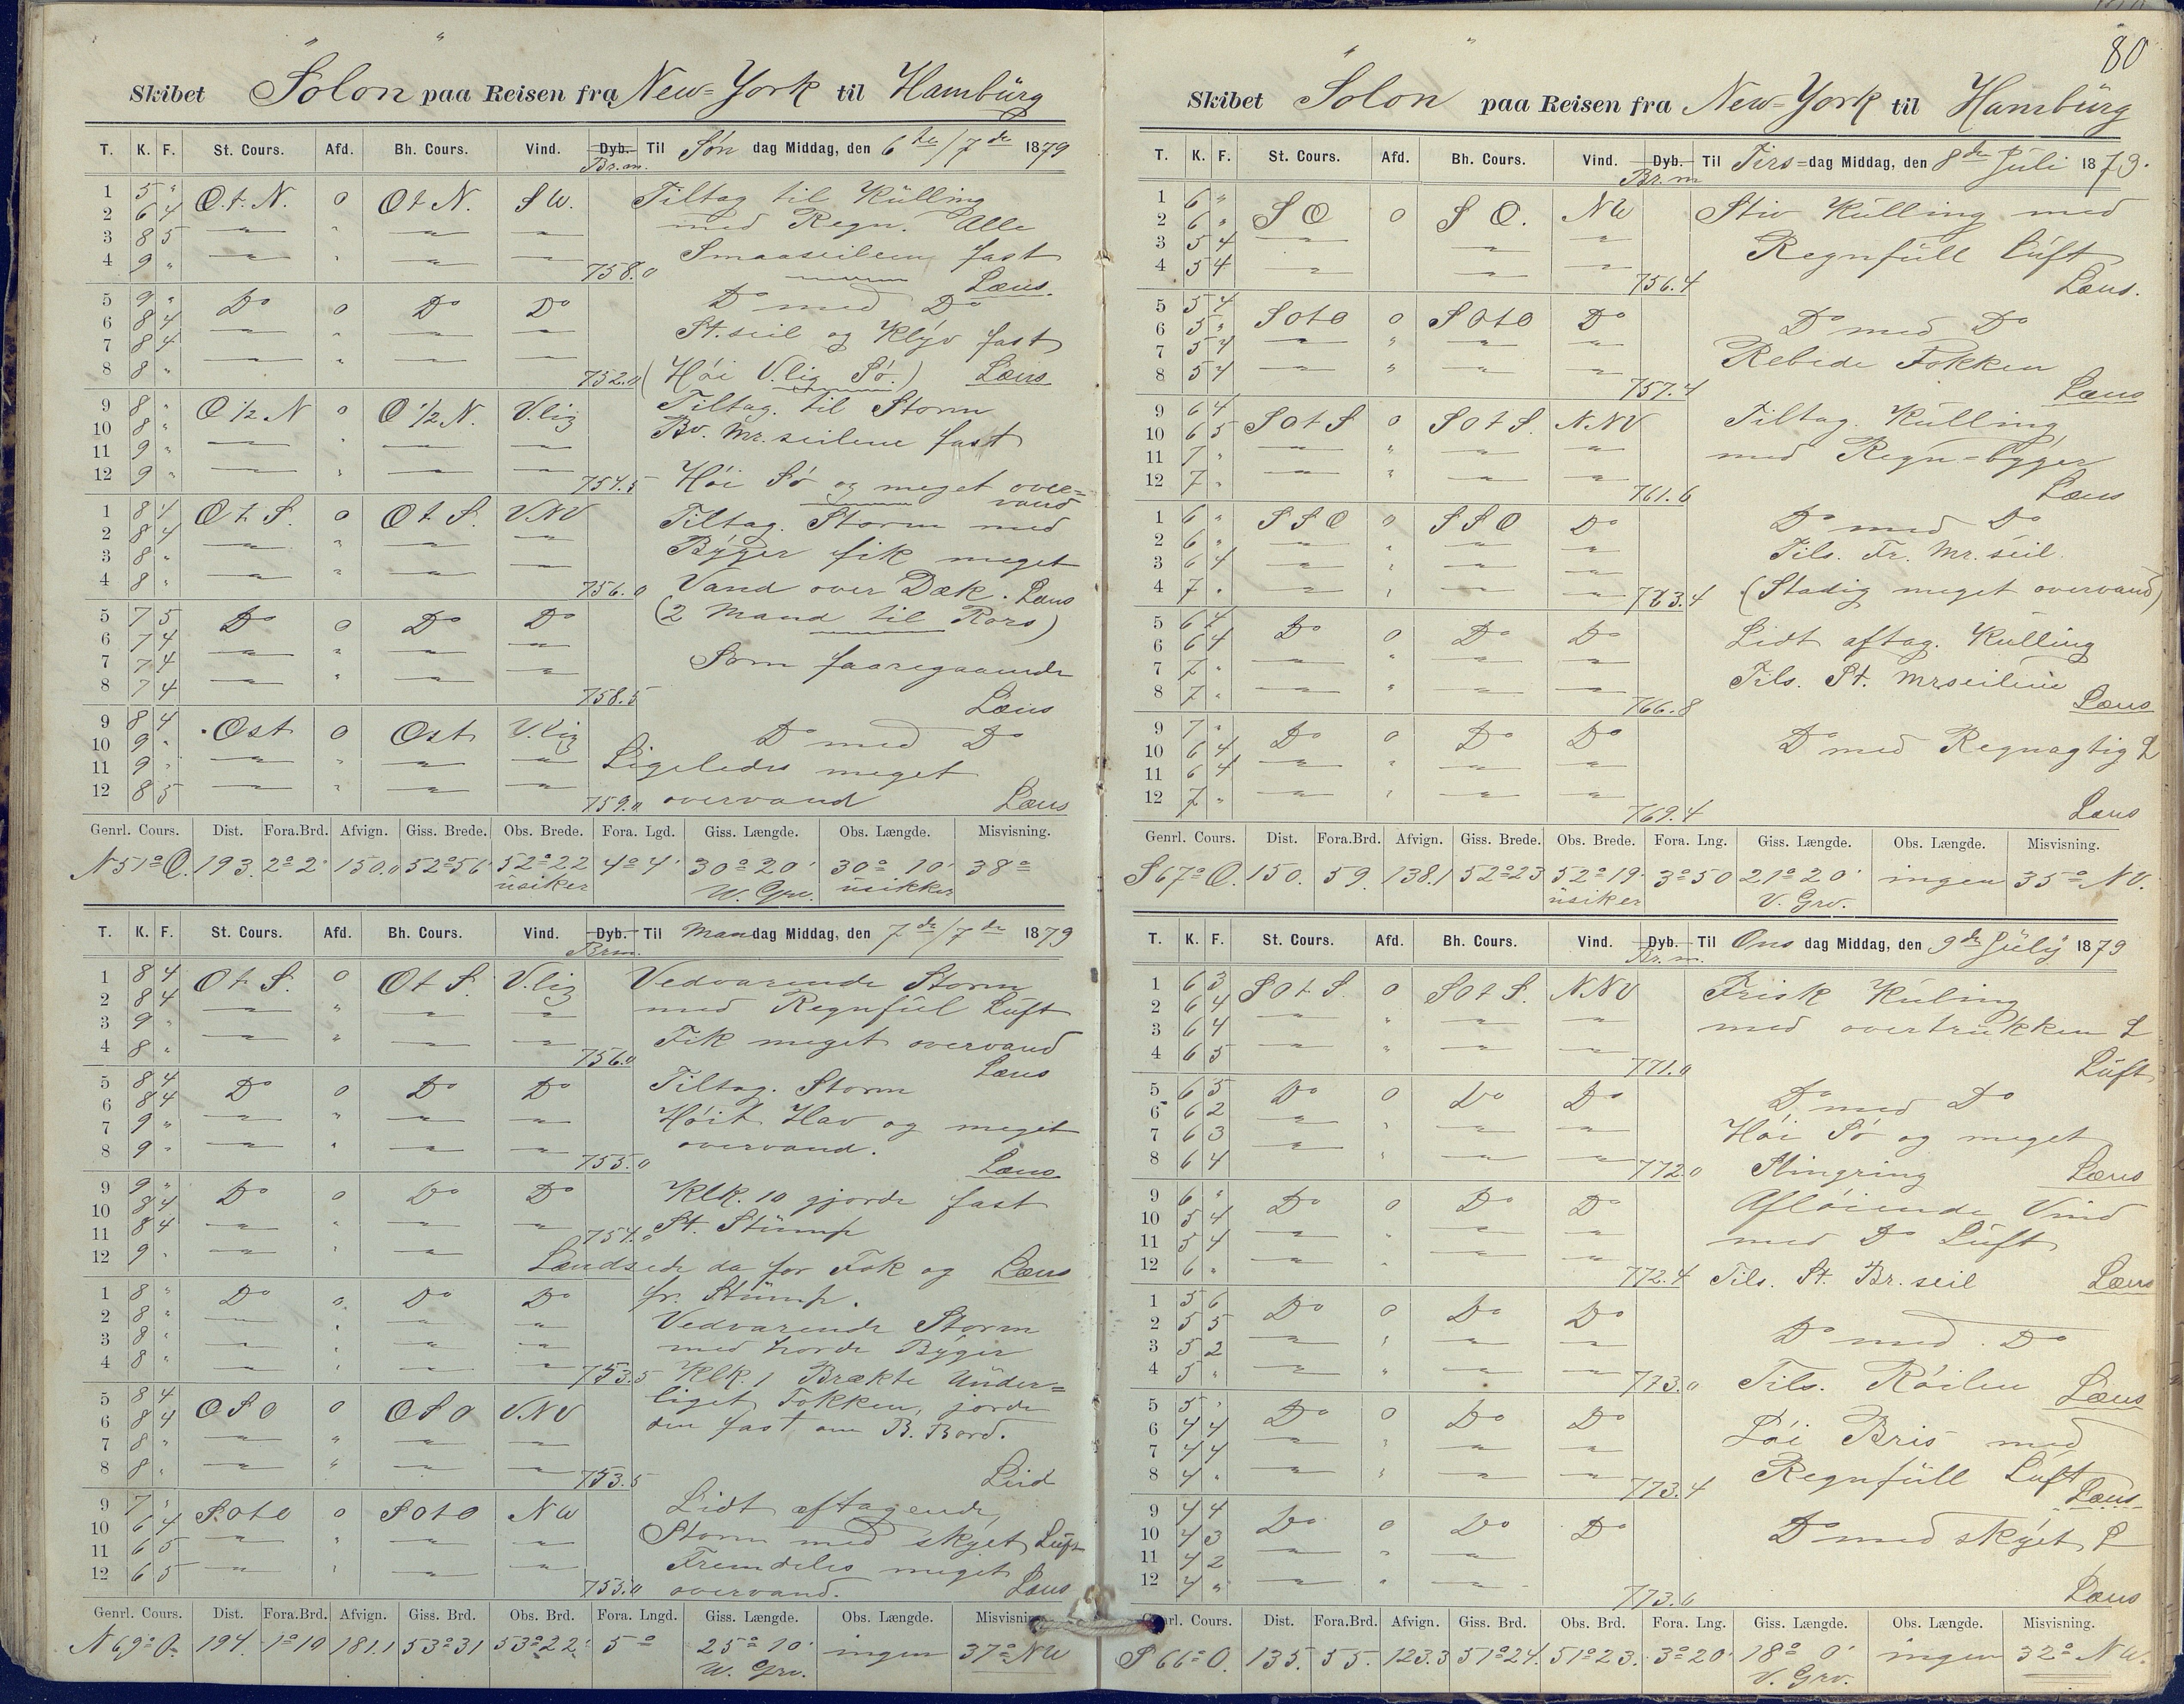 Skibet Solon paa Reisen fra New=York til Hambürg
T. K. F. St. Cours. Afd. Bh. Cours. Vind. Dyb. Br.m. Til Søn dag Middag, den 6te/7de 1879
1 5 " O.t.N. o O t N. S W. Tiltag til Külling
2 6 4 med Regn. Alle
3 8 5 Smaaseilene fast
4 9 " 758.0 Læns.
5 9 " Do o Do Do Do med Do
6 8 4 St.seil og Klyv fast
7 8 4
8 8 " 752.0 (Høi V.lig Sø.) Læns
9 8 " O 1/2 N o O 1/2 N. V.lig Tiltag. til Storm
10 8 " Bv. Mr. seilene fast
11 9 "
12 9 " 754.5 Høi Sø og meget over=
vand
1 8 4 O t S. o O t S. V.NV Tiltag. Storm med
2 8 4 Byger fik meget
3 8 "
4 8 " 756.0 Vand over Dæk. Læns
5 7 5 Do o Do Do (2 Mand til Rors)
6 7 4 Som faaregaaende
7 7 4
8 7 4 758.5 Læns
9 8 4 Ost o Ost V.lig Do med Do
10 9 " Ligeledes meget
11 9 "
12 8 5 759.0 overvand Læns
Genrl. Cours. Dist. Fora.Brd. Afvign. Giss. Brede. Obs. Brede. Fora. Lgd. Giss. Længde. Obs. Længde. Misvisning.
N 51° O. 193. 2° 2' 150.0 52° 56' 52° 22 4° 4' 30° 20' 30° 10' 38°
üsiker W. Grw. üsikker
T. K. F. St. Cours. Afd. Bh. Cours. Vind. Dyb. Brm. Til Man dag Middag, den 7de/7de 1879
1 8 4 O t S. o O t S. V.lig Vedvarende Storm
2 8 4 med Regnfül Lüft
3 9 " Fik meget overvand
4 8 " 756.0 Læns
5 8 4 Do o Do Do Tiltag. Storm
6 8 4 Høit Hav og meget
7 9 " overvand.
8 9 " 755.0 Læns
9 9 " Do o Do Do Klk. 10 gjorde fast
10 8 4
11 8 4 754.0 St. Stümp
12 9 " Lændsede da for Fok og Læns
1 8 " Do o Do Do fr. Stümp.
2 8 " Vedvarende Storm
3 8 " med horde Byger
4 8 " 753.5 Klk. 1 Brækte Ünder=
5 8 4 liget Fokken, jorde
6 8 4 O S O o O S O V.NV den fast om B. Bord.
7 8 "
8 8 " 753.5
9 7 " S.O t O o S O t O N W Lidt aftagende
10 6 4 Storm med skyet Lüft
11 6 5 Fremdeles meget
12 6 5 755.0 overvand. Læns
Genrl. Cours. Dist. Fora.Brd. Afvign. Giss. Brd. Obs. Brd. Fora. Lngd. Giss. Længde. Obs. Længde. Misvisning.
N 69° O. 194. 1° 10 181.1 53° 31 53° 22' 5° 25° 10' ingen 37° NW
W. Grw.
80
Skibet Solon paa Reisen fra New=York til Hambürg
T. K. F. St. Cours. Afd. Bh. Cours. Vind. Dyb. Br.m Til Tirs= dag Middag, den 8de Juli 1879.
1 6 " S O o S O. N W Stiv Külling med
2 6 "
3 5 4 Regnfüll Lüft
4 5 4 756.4 Læns.
5 5 4 S O t O o S O t O Do Do med Do
6 5 "
7 5 4 Rebede Fokken
8 5 4 757.4 Læns
9 6 4 S O t S o S O t S. N.NV Tiltag. Külling
10 6 5
11 7 " med Regn=byger
12 7 " 761.6 Læns
1 6 " S S O o S S O Do Do med Do
2 6 " Tils. Fr. Mr. seil.
3 6 4
4 7 " 763.4 (Stadig meget overvand)
5 6 4 Do o Do Do Lidt aftag. Külling
6 6 4
7 7 " Tils. St. Mrseilene
8 7 " 766.8 Læns
9 7 " Do o Do Do Do med Regnagtig L
10 6 4
11 6 4
12 7 " 769.4 Læns
Genrl. Cours. Dist. Fora.Brd. Afvign. Giss. Brede. Obs. Brede. Fora. Lng. Giss. Længde. Obs. Længde. Misvisning.
S 67° O. 150. 59. 138.1 52° 23 52° 19' 3° 50 21° 20' ingen 35° NV.
üsiker V. Grv.
T. K. F. St. Cours. Afd. Bh. Cours. Vind. Dyb. Br.m. Til Ons dag Middag, den 9de Jüly 1879
1 6 3 S O t S. o S O t S. N NV Frisk Küling
2 6 4 med overtrükken L
3 6 4
4 6 5 771.0 Lüft
5 6 5 Do o Do Do Do med Do
6 6 2
7 6 3 Høi Sø og meget
8 6 4 772.0 Slingring Læns
9 6 " Do o Do Do Afløiende Vind
10 5 4 med Do Lüft
11 5 4
12 6 " 772.4 Tils. St. Br. seil Læns
1 5 6 Do o Do Do
2 5 5 Do med Do
3 5 2
4 5 " 773.0 Tils. Røilen Læns
5 5 " Do o Do Do
6 4 4 Løi Bris med
7 4 4 Regnfüll Lüft
8 4 " 773.4 Læns
9 4 4 Do o Do Do Do med skyet L
10 4 3
11 4 2
12 4 " 773.6 Læns
Genrl. Cours. Dist. Fora.Brd. Afvign. Giss. Brd. Obs. Brd. Fora. Lng. Giss. Længde. Obs. Længde. Misvisning.
S 66° O. 135. 55. 123.3 51° 24. 51° 23. 3° 20 18° 0' ingen 32° N W.
V. Grv.